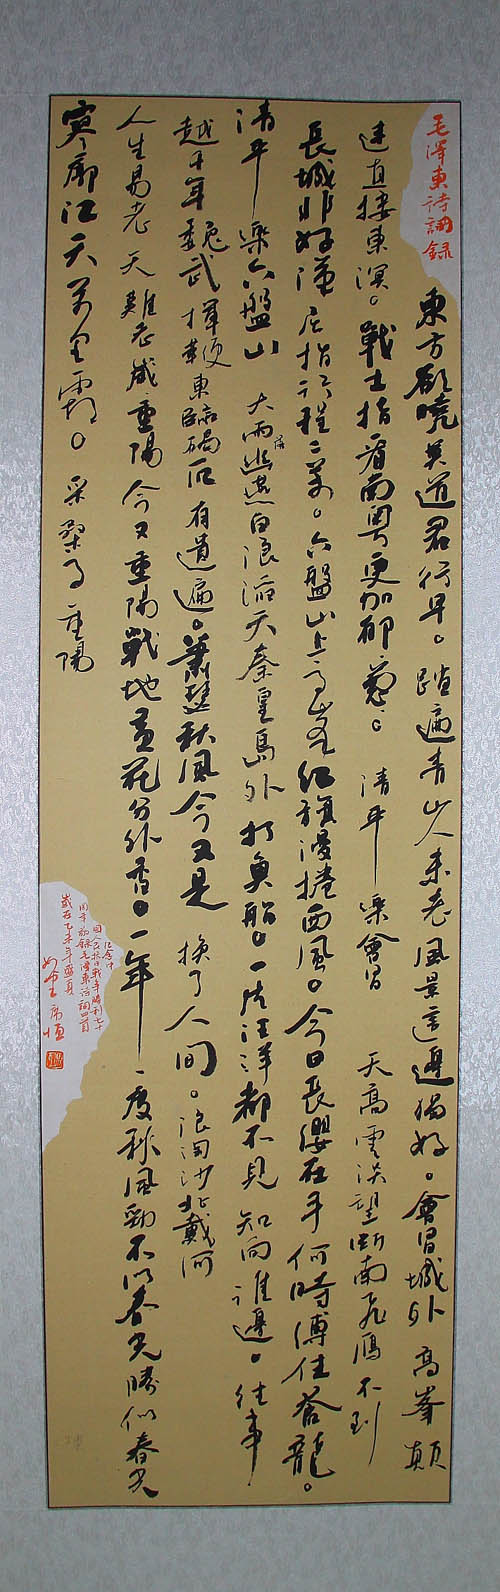 毛澤東詩詞録
東方欲曉莫道君行早。踏遍青山人未老風景這邊獨好。會昌城外高峯顛
連直接東溟。戰士指看南粵更加郁葱。清平樂會昌 天高雲淡望斷南飛雁不到
長城非好漢屈指行程二萬。六盤山上高峰红旗漫捲西風。今日長纓在手何時縛住蒼龍。
清平樂六盤山 大雨落幽燕白浪滔天秦皇島外打魚船。一片汪洋都不見知向誰邊。往事
越千年魏武揮鞭東臨碣石有遺遍。蕭瑟秋風今又是换了人间。浪淘沙北戴河
人生易老天難老歲重陽今又重陽戰地黄花分外香。一年一度秋風勁不似春光勝似春光
寥廓江天萬里霜。采桑子重陽
纪念中
國人民抗日戰争勝利七十
周年敬録毛澤東詩詞四首
歲在乙未年盛夏
席恒